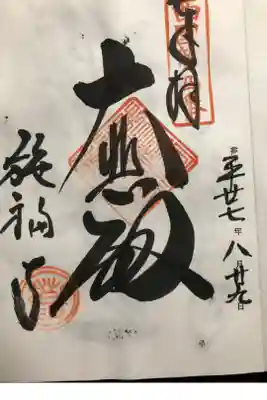 奉拝
平廿七年八月廿九日
大悲殿
施福寺